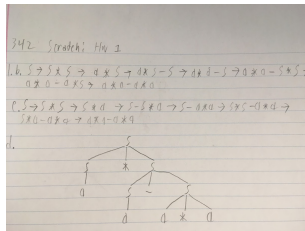 342 Scratch: HW 1
1.b. S → S * S → a * S → a * S - S → a * a - S → a * a - S * S →
a * a - a * S → a * a - a * a
c. S → S * S → S * a → S - S * a → S - a * a → S * S - a * a →
S * a - a * a → a * a - a * a
d. S
S * S
a S - S
a a * a